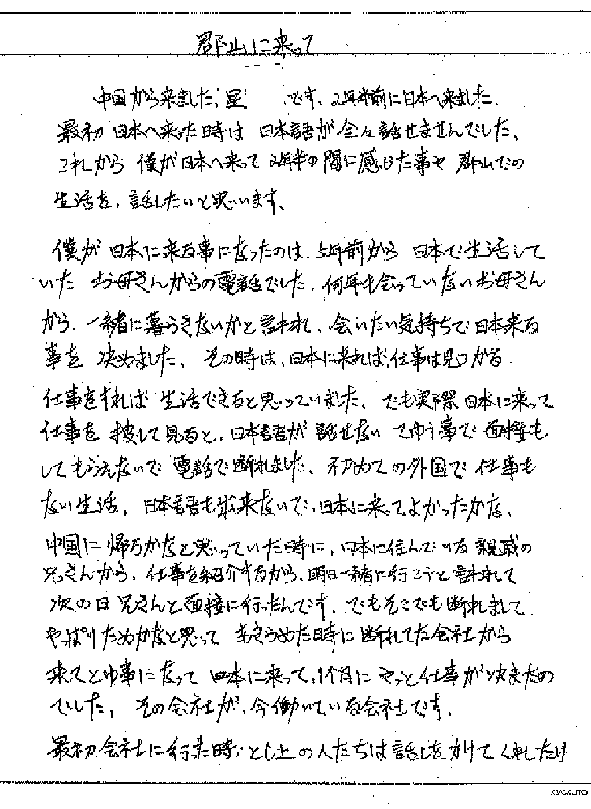 郡山に来って
中国から来ました,星 です、2年半前に日本へ来ました.
最初 日本へ来った時は 日本語が全々話せませんでした、
これから 僕が日本へ来って 2年半の間に感じた事や 郡山での
生活を,話したいと思います、
僕が日本に来る事になったのは 5年前から 日本で生活して
いた お母さんからの電話でした,何年も会っていないお母さん
から,一緒に暮らさないかと言われ、会いたい気持ちで日本来る
事を 決めました、その時は、日本に来れば,仕事は見つかる
仕事をすれば 生活できると思っていました、でも実際日本に来って
仕事を 捜して見ると、日本語が 話せない てゆう事で 面接も
してもらえないで 電話で断れました、初めての外国で 仕事も
ない生活,日本語も出来ないで,日本に来ってよかったかな、
中国に帰ろかなと思っていた時に,日本に住んでいる親戚の
兄さんから,仕事を紹介するから,明日一緒に行こうと言われて
次の日 兄さんと面接に行ったんです,でもそこでも断れまして
やっぱりだめかなと思って あきらめた時に 断れてた会社から
来てと事になって 日本に来って,1ヶ月に やっと仕事が決またの
でした,その会社が、今働いている会社です,
最初会社に行った時,とし上の人たちは話しをかけてくれしたけ